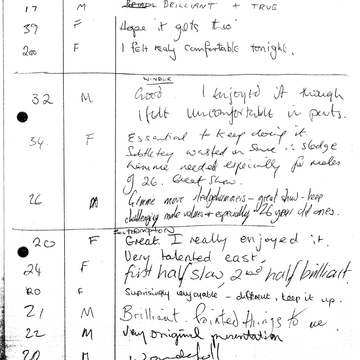 17 M BRILLIANT + TRUE
39 F Hope it gets too
20 F I felt realy comfortable tonight.
WINDSOR
32 M Good. I enjoyed it though
I felt uncomfortable in parts.
34. F Essential to keep doing it.
Subtlety wasted in some ∴ sledge
hammer needed especially for males
of 26. Great Show.
26 M Gimme more sledgehammers - great show - keep
challenging male values + especially 26 year old ones.
20 F Great. I really enjoyed it.
Very talented cast,
24 F first half slow, 2nd half brilliant.
20 F Suprisingly enjoyable - different, keep it up.
21 M Brilliant. Pointed things to me
22 M Very original presentation
20 M Wonderful